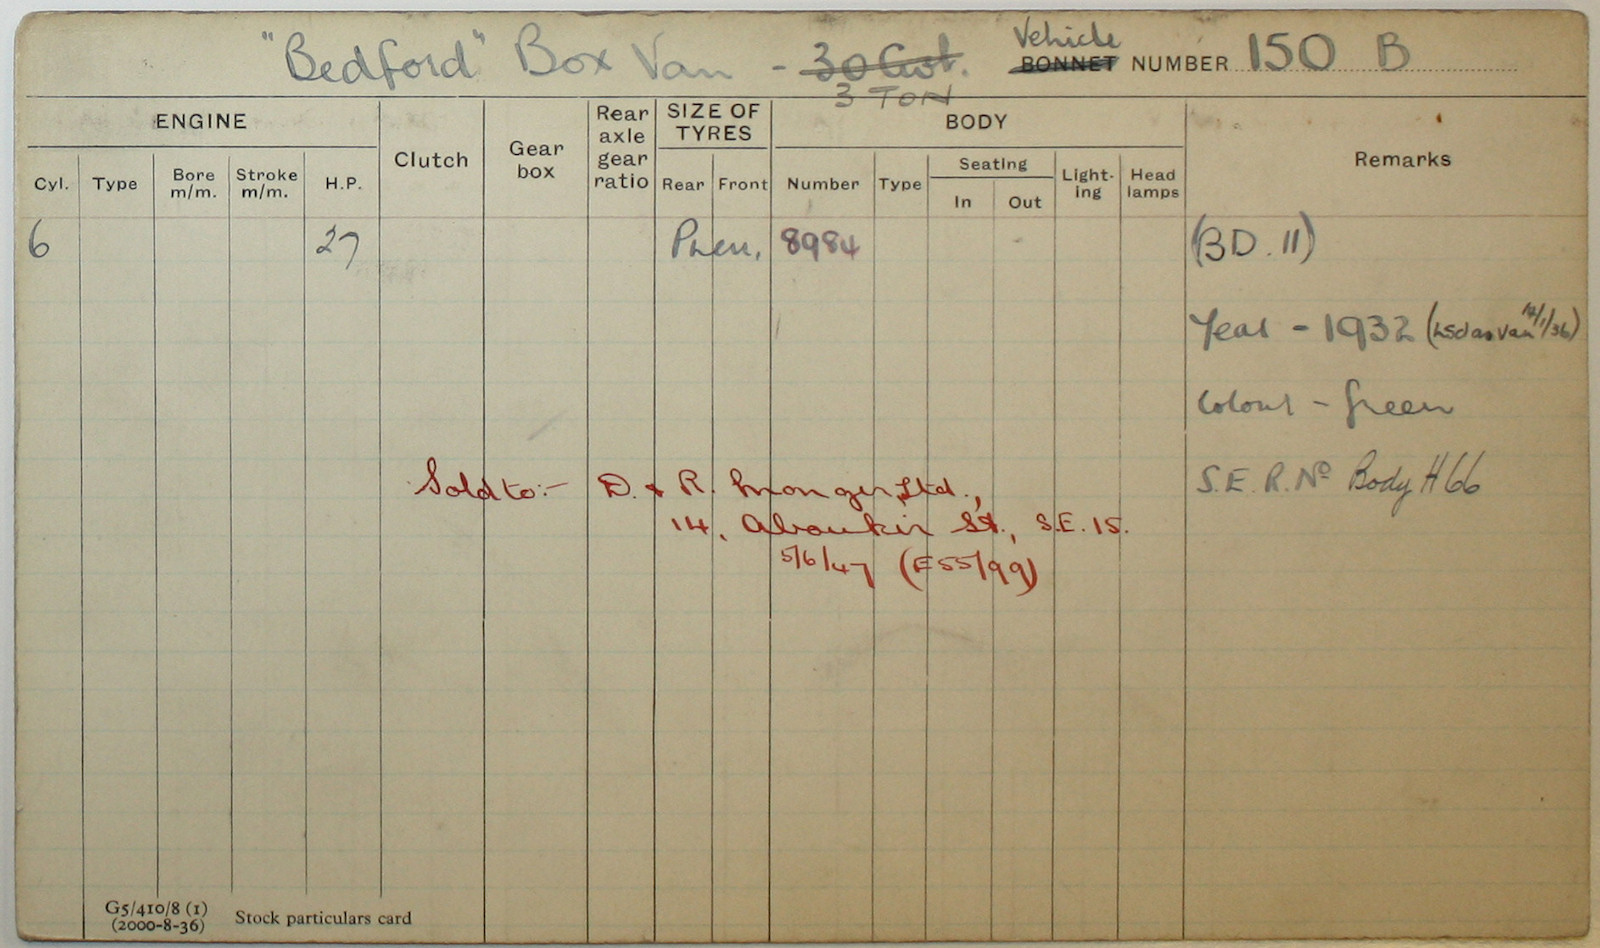 "Bedford" Box Van - 30 Cwt. Vehicle BONNET NUMBER 150 B
3 TON
ENGINE Clutch Gear box Rear axle gear ratio SIZE OF TYRES BODY Remarks
Cyl. Type Bore m/m. Stroke m/m. H.P. Rear Front Number Type Seating In Out Light-ing Head lamps
6 27 Pneu. 8984 (BD. 11)
Year - 1932 (Lsd as Van 14/1/36)
Colour - Green
Sold to:- D. & R. Monger, Ltd., S.E.R. No Body H66
14, Aboukir St., S.E. 15.
5/6/47 (E55/99)
G5/410/8 (1)
(2000-8-36) Stock particulars card